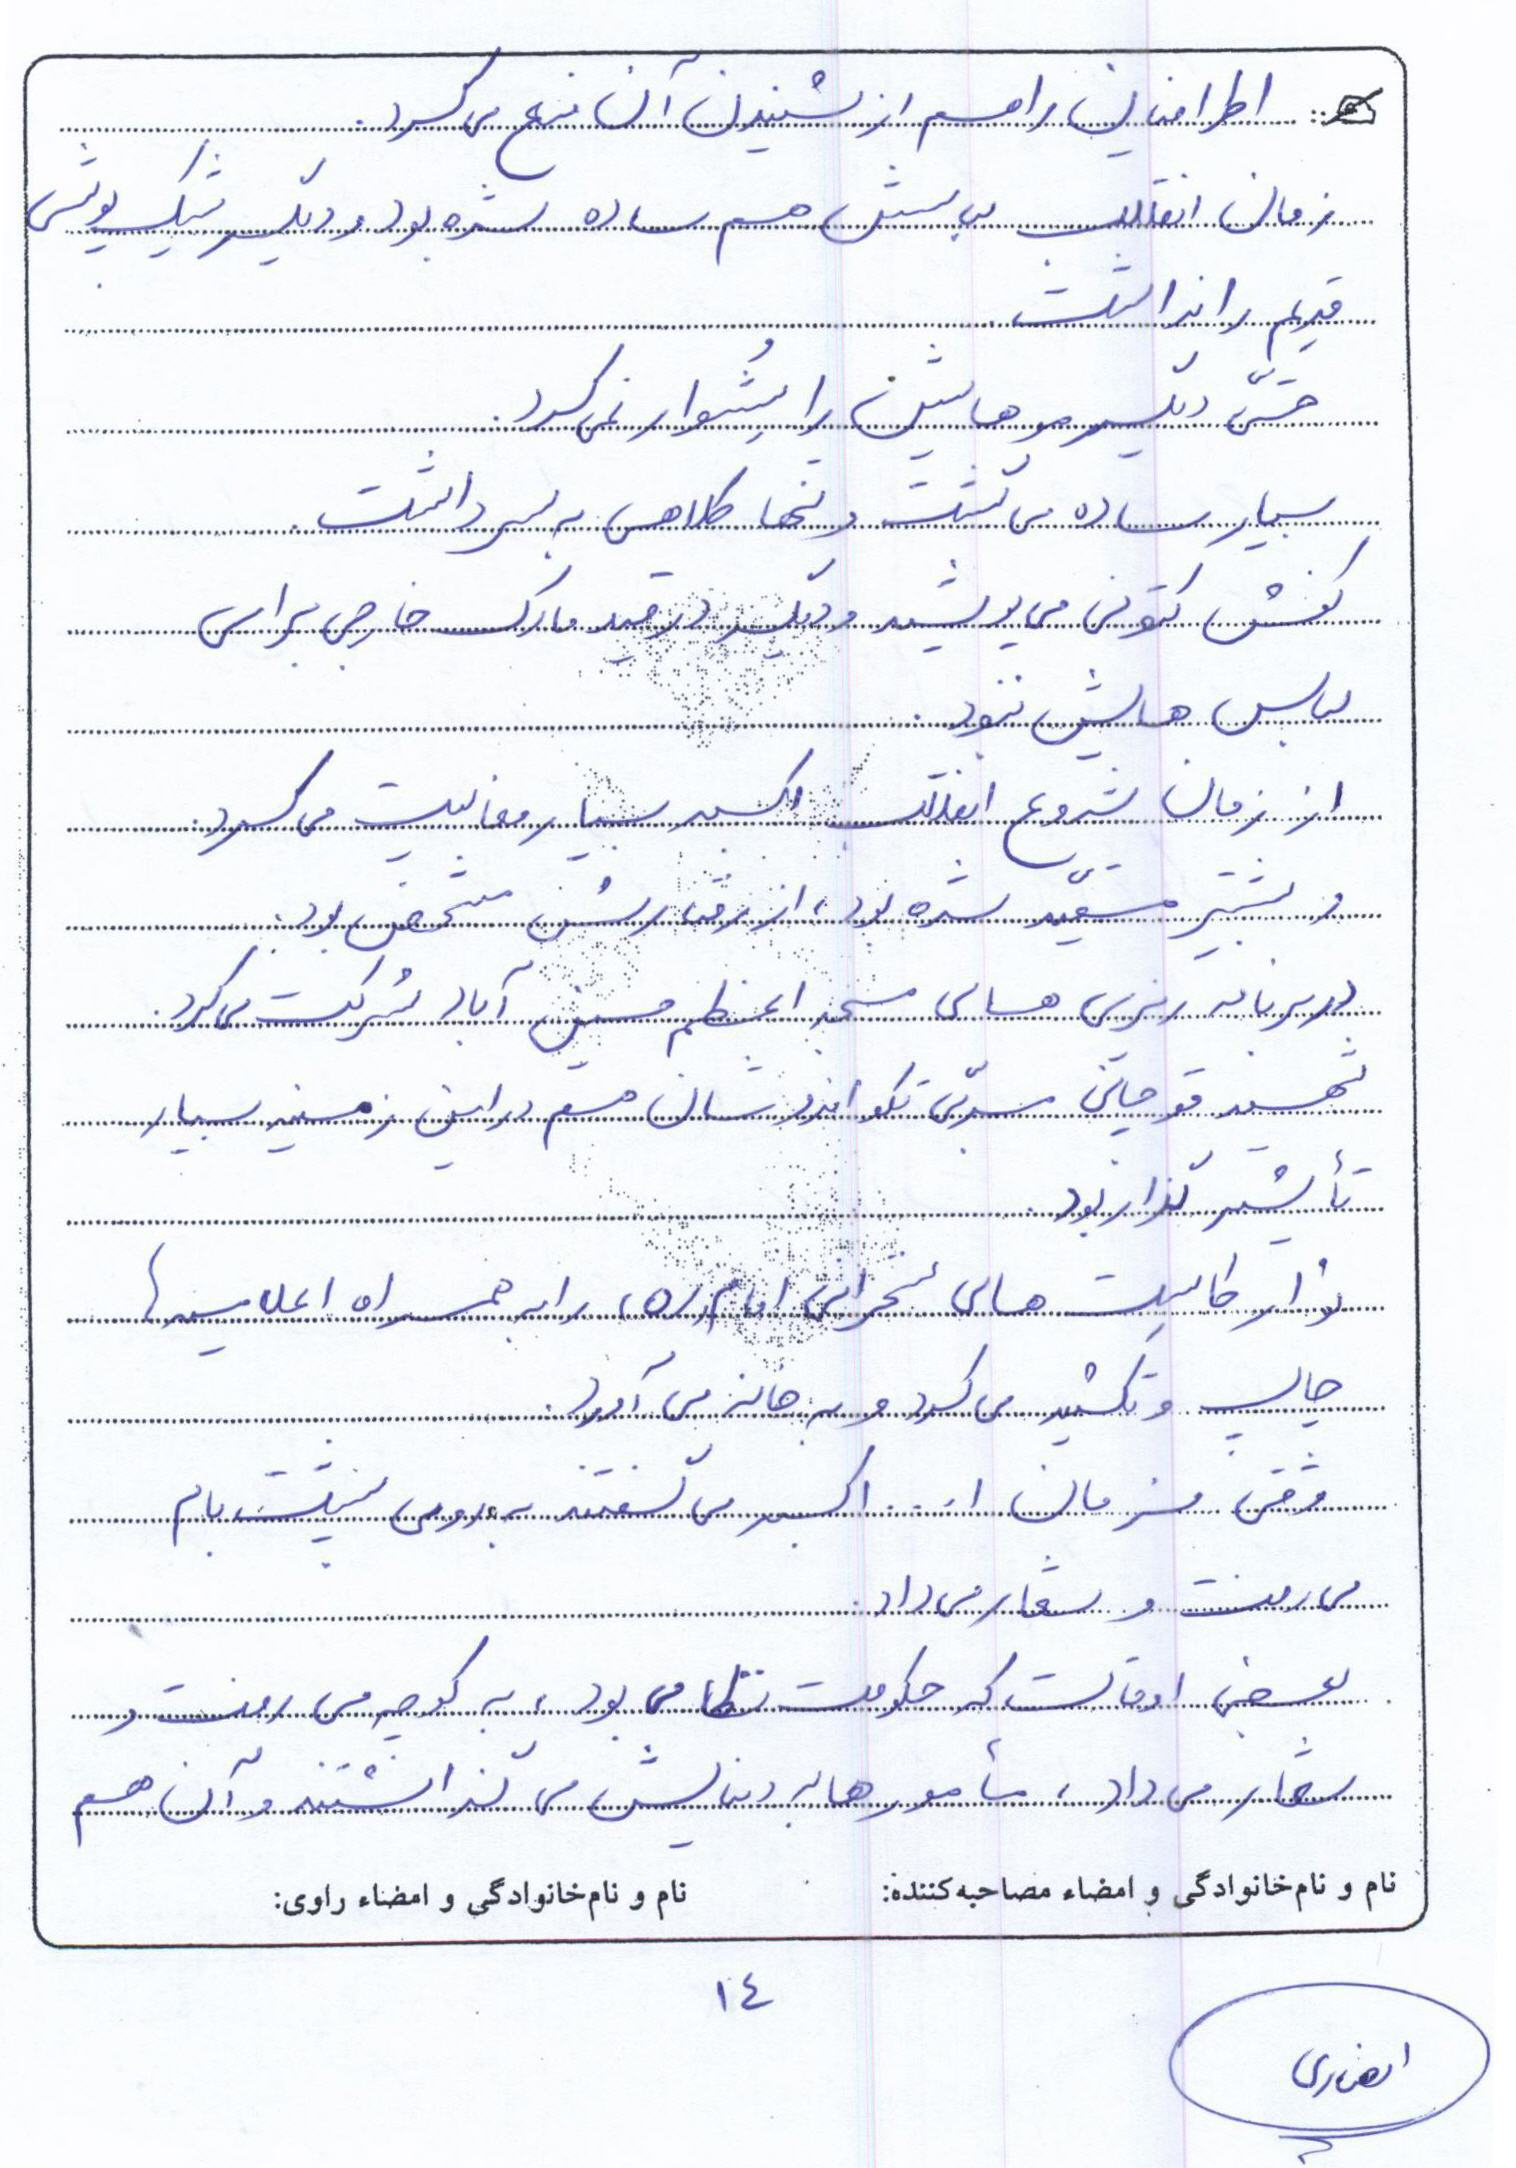 اطرافیان را هم از شنیدن آن منع می‌کرد.
زمان انقلاب لباسش هم ساده شده بود و دیگر شیک پوشی
قدیم را نداشت.
حتّی دیگر موهایش را پشوار نمی‌کرد.
بسیار ساده می‌گشت و تنها کلاهی به سر داشت.
کفش کتونی می‌پوشید و دیگر در قید مارک خارجی برای
لباس هایش نبود.
از زمان شروع انقلاب اکبر بسیار فعالیت می‌کرد.
و بیشتر مقیّد شده بود، از رفتارش مشخص بود.
در برنامه ریزی های مسجد اعظم حسین آباد شرکت می‌کرد.
شهید قوچانی مربّی تکواندوشان هم در این زمینه بسیار
تأثیر گذار بود.
نوار کاست های سخرانی امام (ره) را به همراه اعلامیه ها
چاپ و تکثیر می‌کرد و به خانه می‌آورد.
وقتی فرمان ا... اکبر می‌گفتند به روی پشت بام
می‌رفت و شعار می‌داد.
بعضی اوقات که حکومت نظامی بود، به کوچه می‌رفت و
شعار می‌داد، مأمورها به دنبالش می‌گذاشتند و آن هم
نام و نام‌خانوادگی و امضاء مصاحبه‌کننده: نام و نام‌خانوادگی و امضاء راوی:
١٤
انصاری